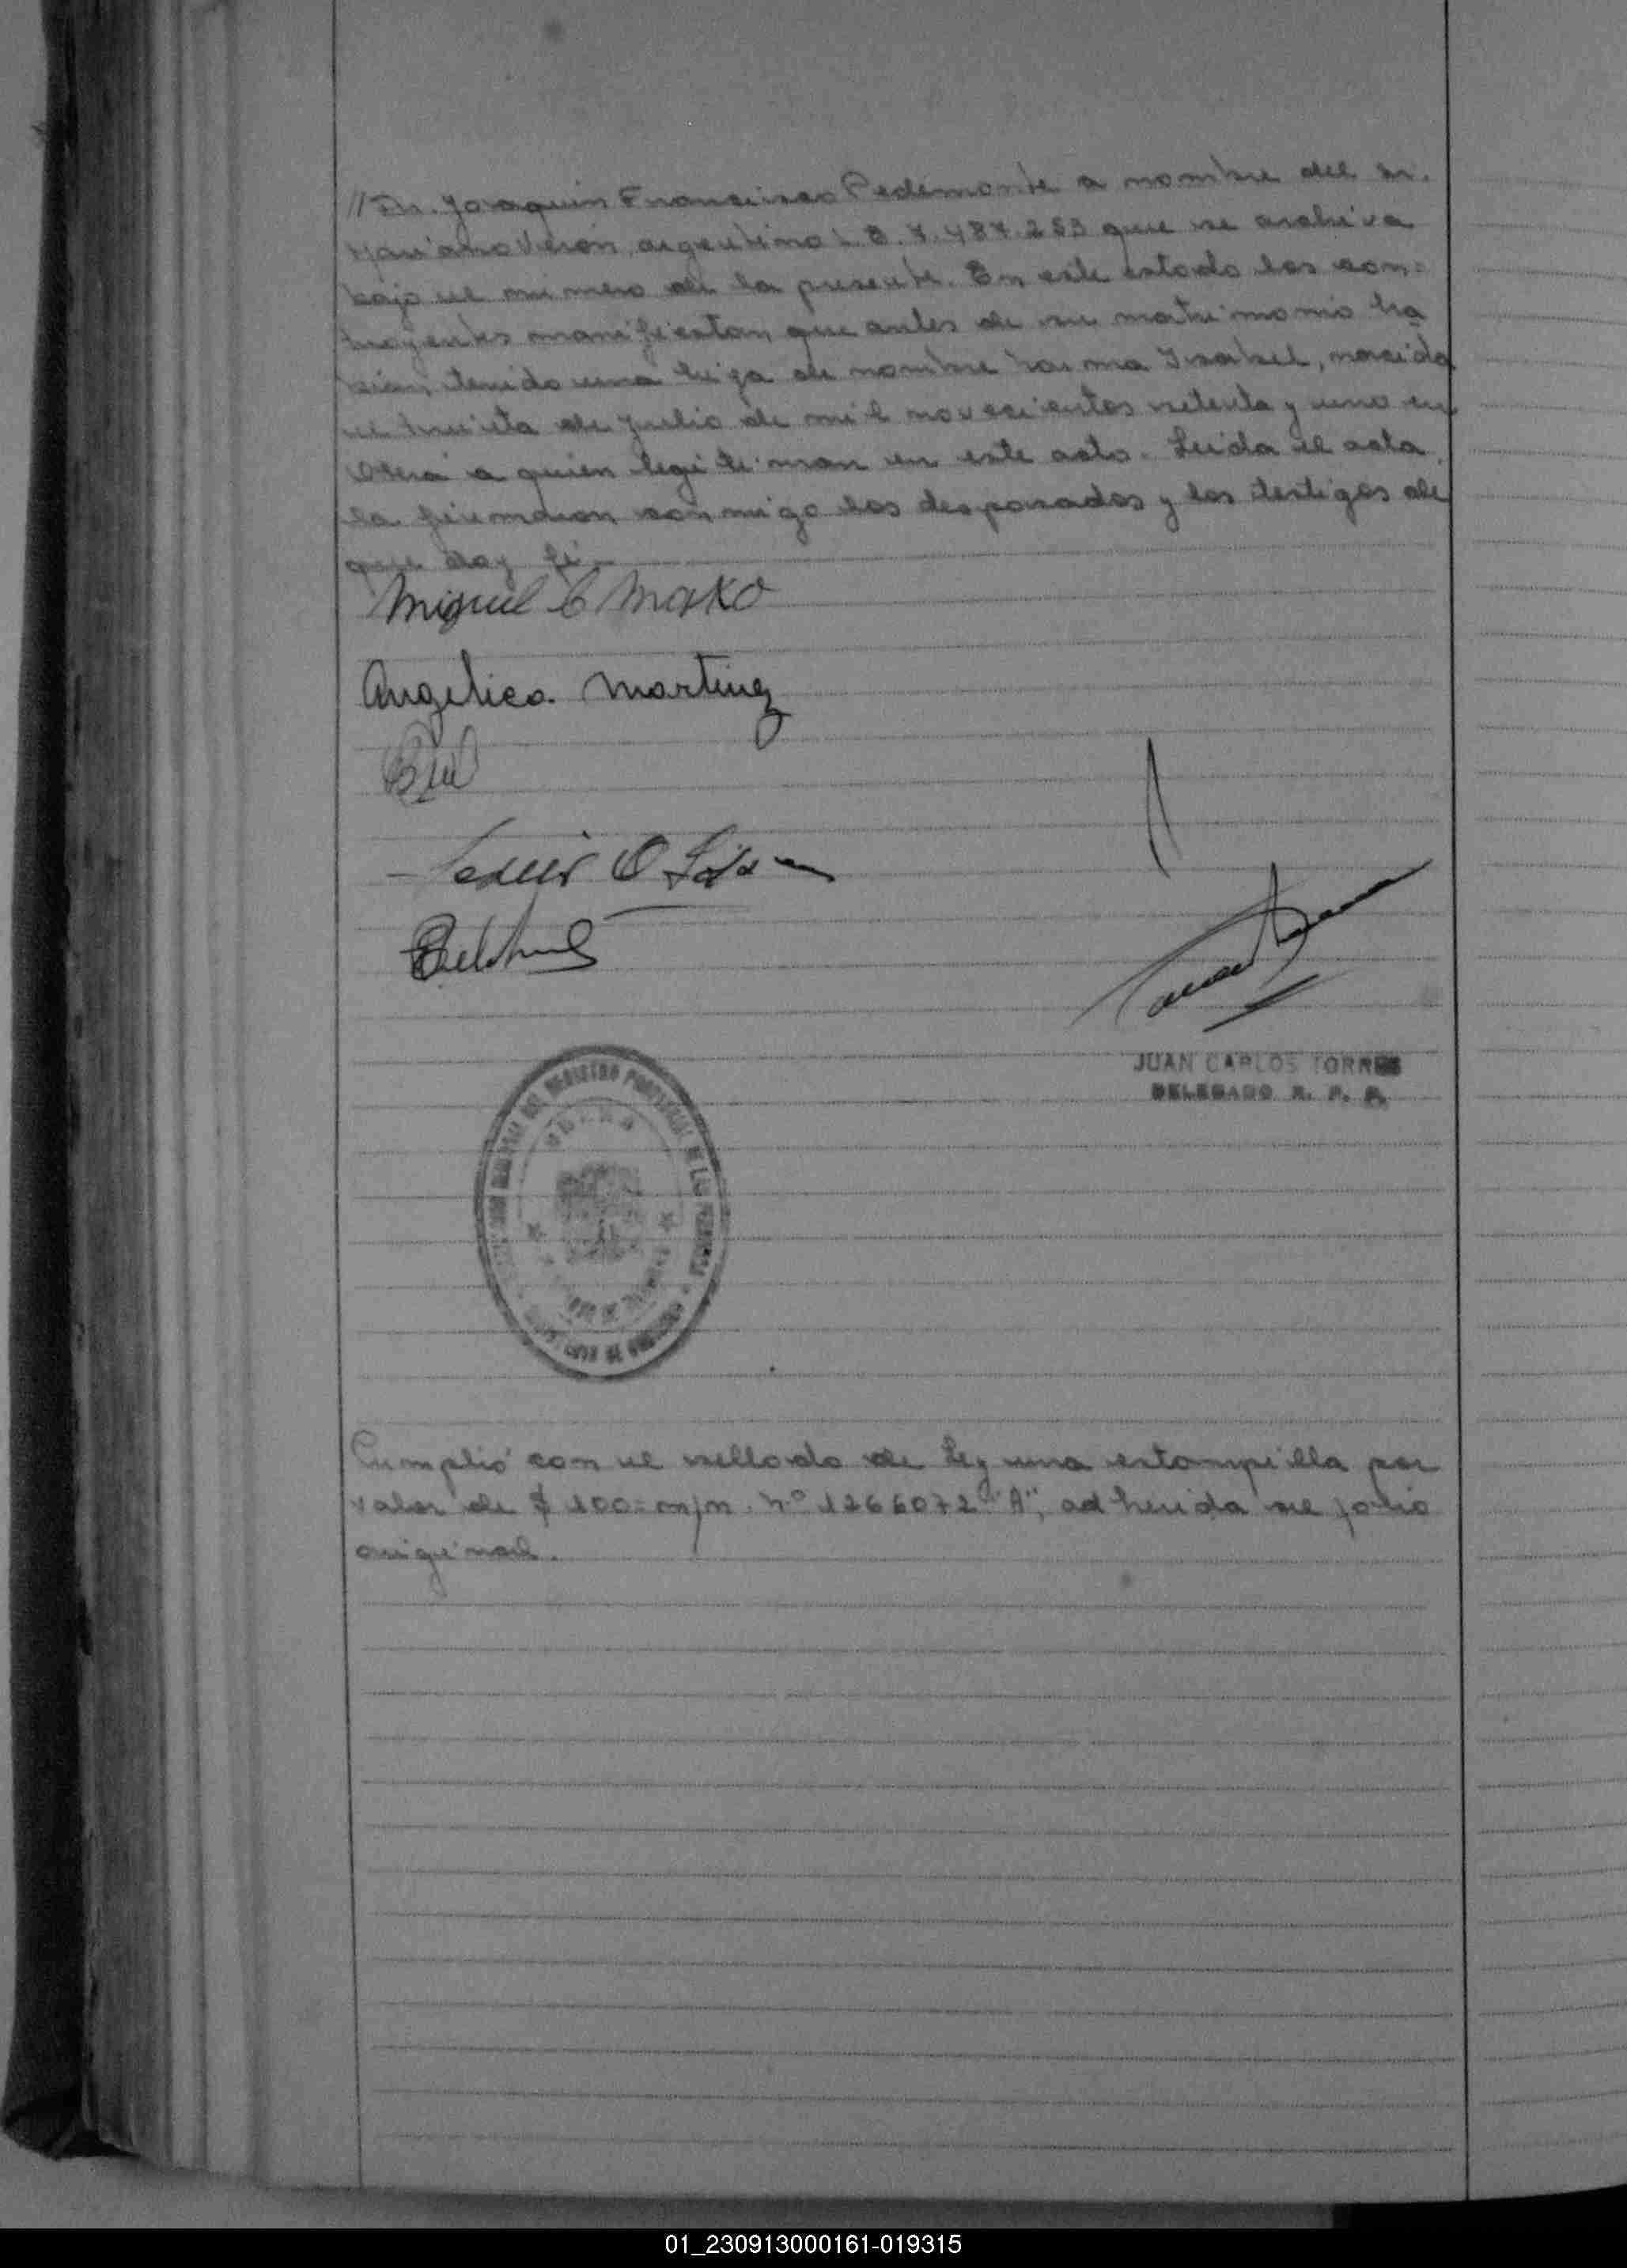 // Dr. Joaquin Francisco Pedemonte a nombre del Sr.
Mariano Verón, argentino L. E. 7.487.253 que se archiva
bajo el número de la presente. En este estado los con=
trayentes manifiestan que antes de su matrimonio ha
bían tenido una hija de nombre Norma Isabel, nacida
el treinta de julio de mil novecientos setenta y uno en
Oberá a quien legitiman en este acto. Leida el acta
la firmaron conmigo los desposados y los testigos de
que doy fé.
Miguel
Angelica Martinez
JUAN CARLOS TORRES
DELEGADO R. P. P.
REGISTRO PROVINCIAL DE LAS PERSONAS
Cumplió con el sellado de Ley una estampilla por
valor de $ 100= m/n. Nº 1266072 "A", adherida al folio
original.
01_230913000161-019315